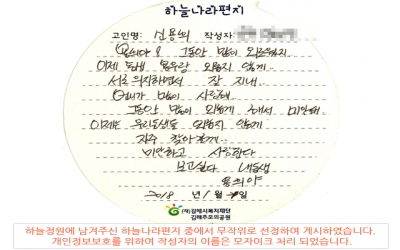 하늘나라편지
고인명: 신용희 작성자:
그동안 많이 외로웠지
이제 외롭지 않게
서로 의지하면서 잘 지내
언니가 많이 사랑해
그동안 많이 외롭게 해서 미안해
이제는 우리 동생들 외롭지 않게
자주 찾아올게
미안하고 사랑한다
보고싶다 내동생
용희야
2018 1
(재)김해시복지재단
김해추모의공원
하늘정원에 남겨주신 하늘나라편지 중에서 무작위로 선정하여 게시하였습니다.
개인정보보호를 위하여 작성자의 이름은 모자이크 처리 되었습니다.